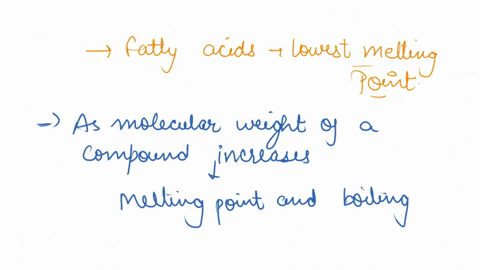 → fatty acids → lowest melting
point
→ As molecular weight of a
compound increases
↓
melting point and boiling